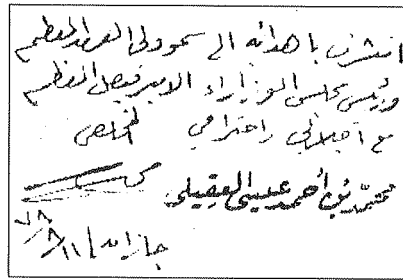 اتشرف باهدائه الى سمو ولي العهد المعظم
ورئيس مجلس الوزراء الامير فيصل المعظم
مع اجلالي واحترامي المخلص
محمد بن أحمد عيسى العقيلي
جازان ٧٨/٨/١١